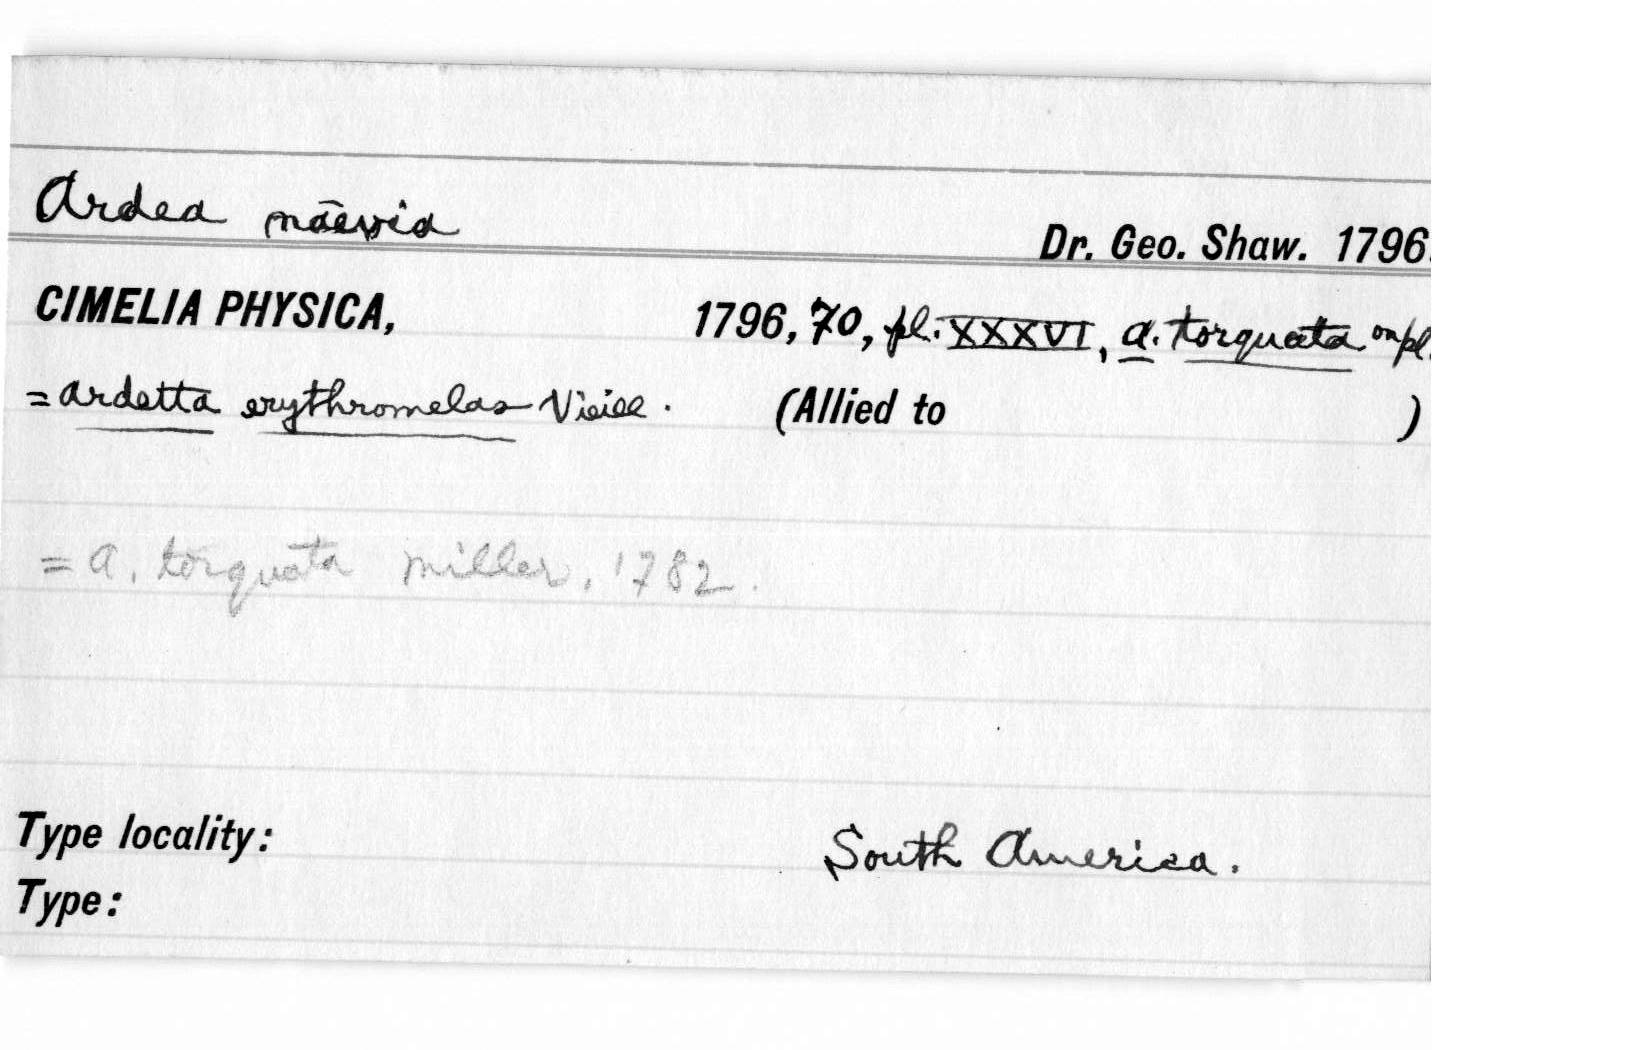 Ardea näevia
Dr. Geo. Shaw. 1796.
CIMELIA PHYSICA, 1796, 70, pl. XXXVI, A. torquata on pl.
= Ardetta erythromelas Vieill. (Allied to )
= A. torquata Miller, 1782.
Type locality: South America.
Type: